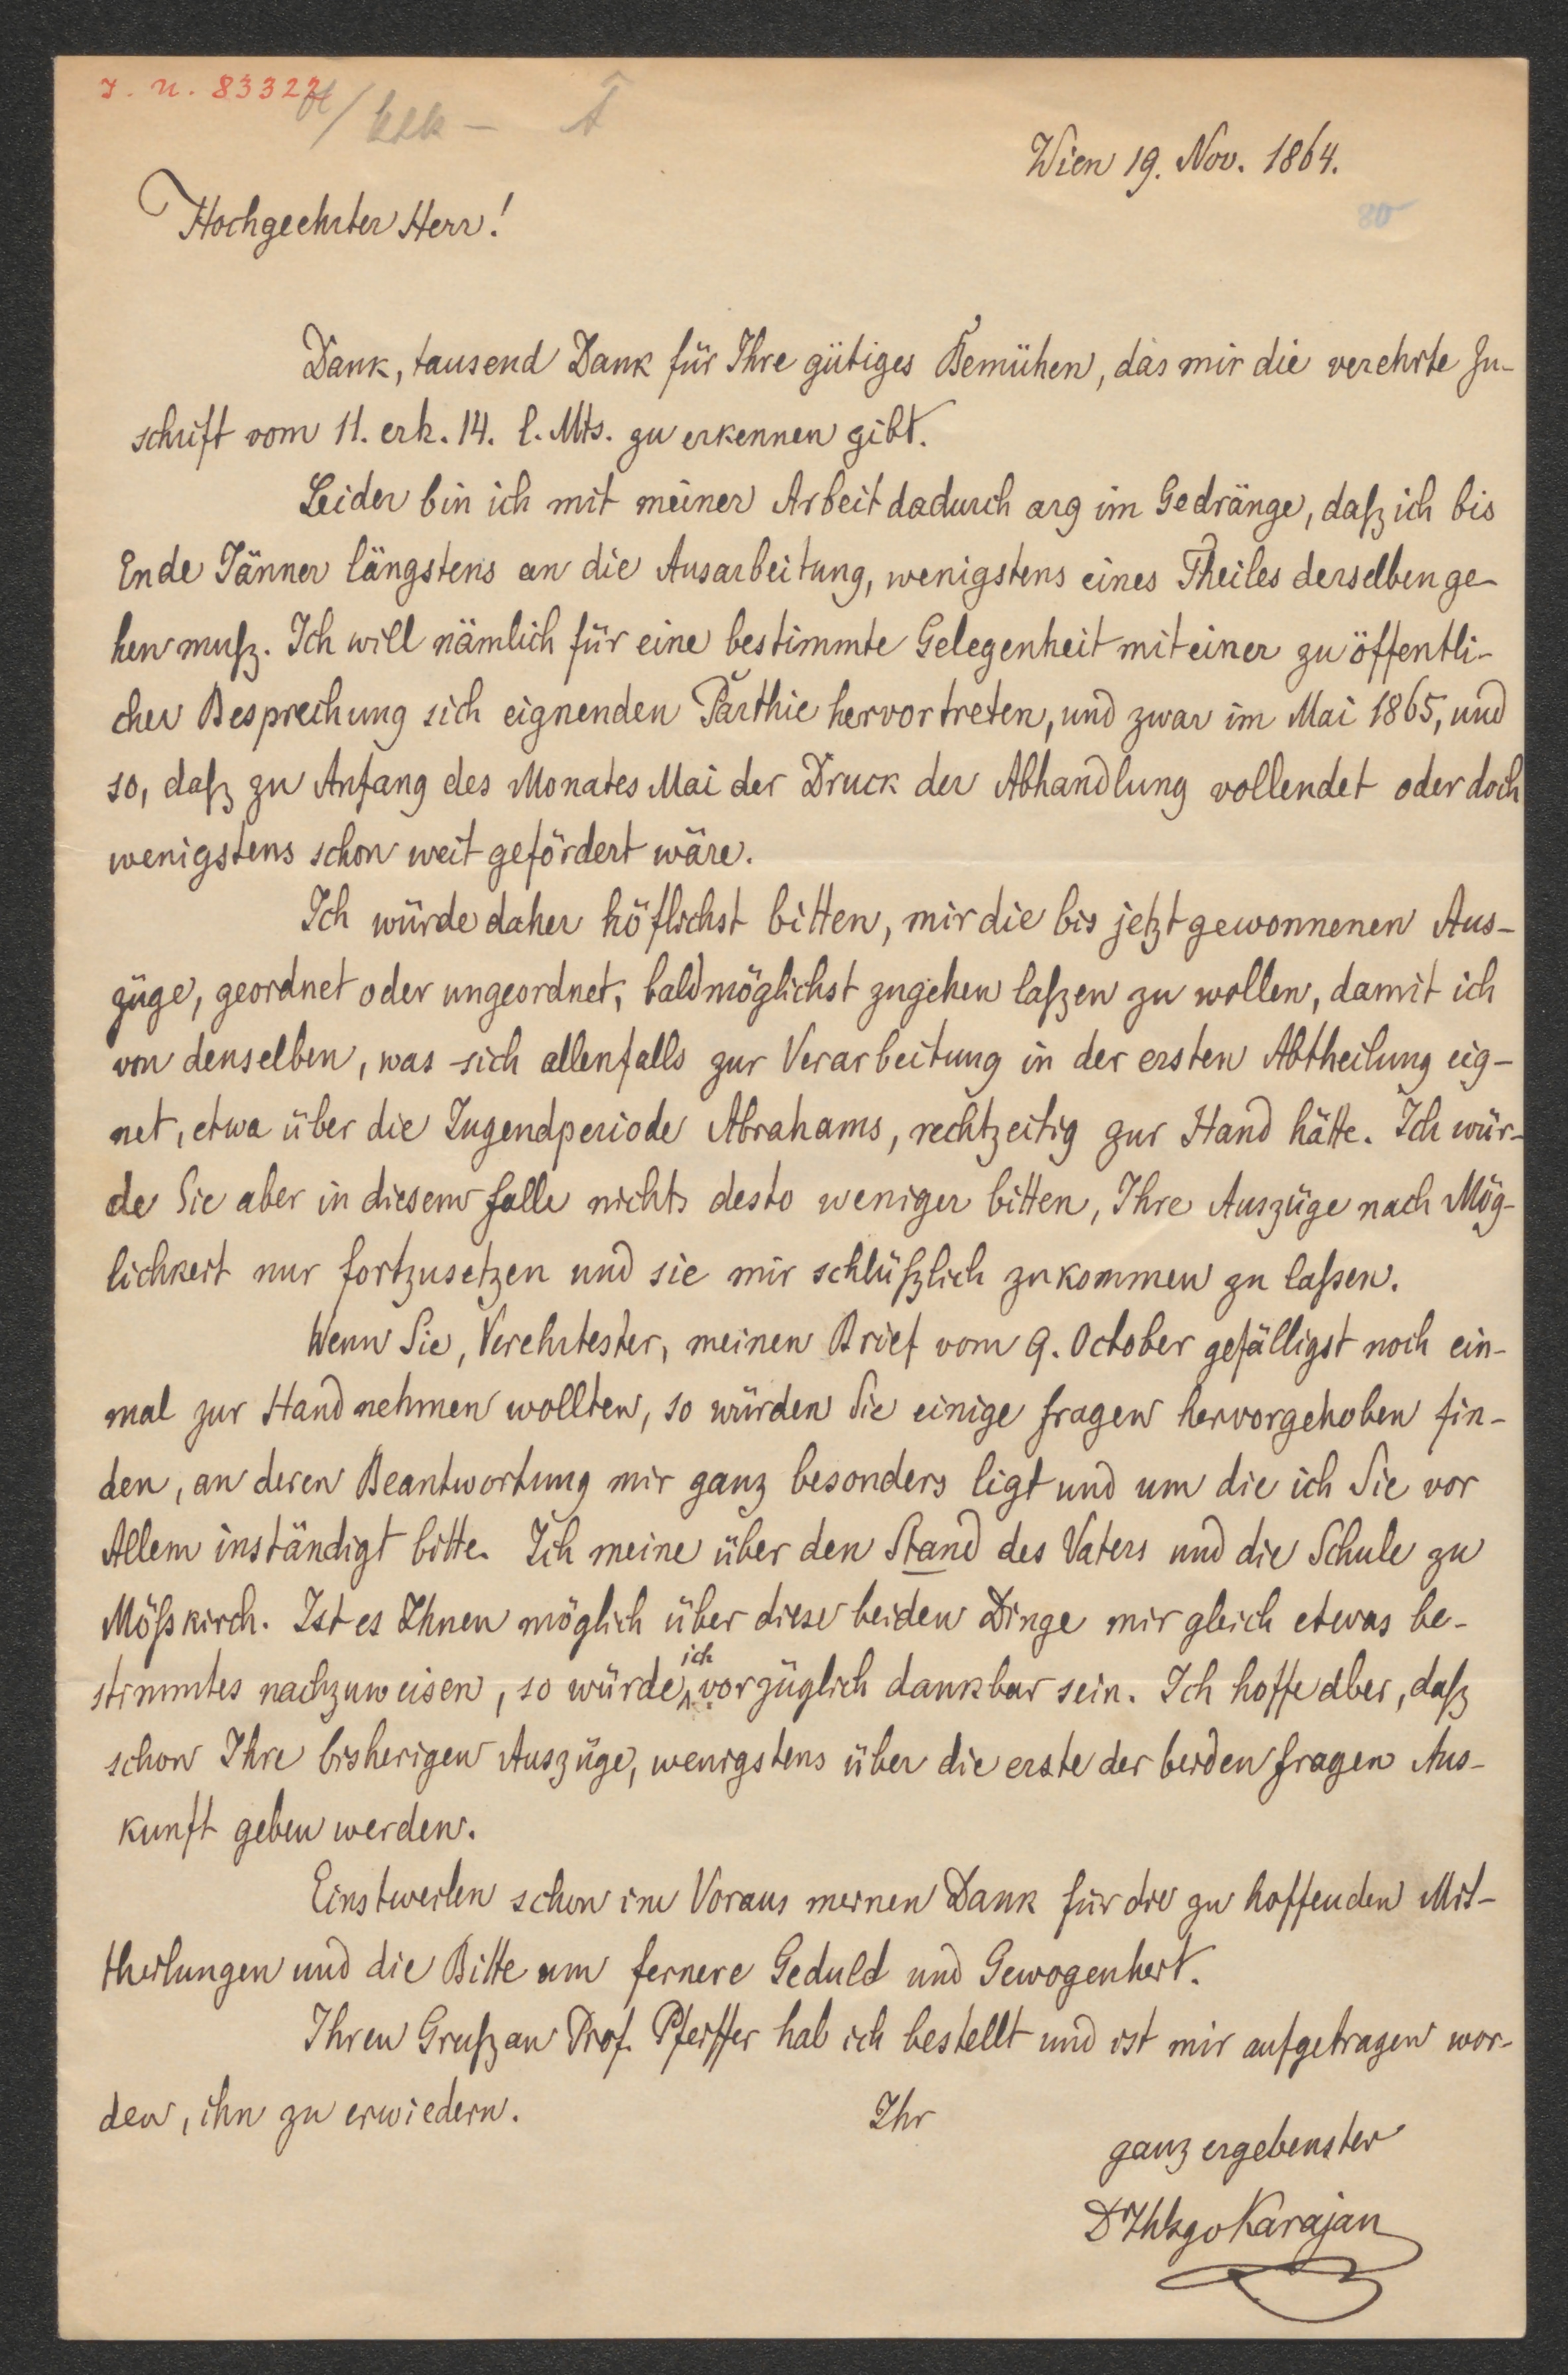 I. N. 83322
Wien 19. Nov. 1864.
80
Hochgeehrter Herr!
Dank, tausend Dank für Ihre gütiges Bemühen, das mir die verehrte Zu-
schrift vom 11. erh. 14. l. Mts. zu erkennen gibt.
Leider bin ich mit meiner Arbeit dadurch arg im Gedränge, daß ich bis
Ende Jänner längstens an die Ausarbeitung, wenigstens eines Theiles derselben ge-
hen muß. Ich will nämlich für eine bestimmte Gelegenheit mit einer zu öffentli-
cher Besprechung sich eignenden Parthie hervortreten, und zwar im Mai 1865, und
so, daß zu Anfang des Monates Mai der Druck der Abhandlung vollendet oder doch
wenigstens schon weit gefördert wäre.
Ich würde daher höflichst bitten, mir die bis jetzt gewonnenen Aus-
züge, geordnet oder ungeordnet, baldmöglichst zugehen laßen zu wollen, damit ich
von denselben, was sich allenfalls zur Verarbeitung in der ersten Abtheilung eig-
net, etwa über die Jugendperiode Abrahams, rechtzeitig zur Hand hätte. Ich wür-
de Sie aber in diesem Falle nichts desto weniger bitten, Ihre Auszüge nach Mög-
lichkeit nur fortzusetzen und sie mir schlüßlich zukommen zu laßen.
Wenn Sie, Verehrtester, meinen Brief vom 9. October gefälligst noch ein-
mal zur Hand nehmen wollten, so würden Sie einige Fragen hervorgehoben fin-
den, an deren Beantwortung mir ganz besonders ligt und um die ich Sie vor
Allem inständigt bitte. Ich meine über den Stand des Vaters und die Schule zu
Mößkirch. Ist es Ihnen möglich über diese beiden Dinge mir gleich etwas be-
stimmtes nachzuweisen, so würde ich vorzüglich dankbar sein. Ich hoffe aber, daß
schon Ihre bisherigen Auszüge, wenigstens über die erste der beiden Fragen Aus-
kunft geben werden.
Einstweilen schon im Voraus meinen Dank für die zu hoffenden Mit-
theilungen und die Bitte um fernere Geduld und Gewogenheit.
Ihren Gruß an Prof. Pfeiffer hab ich bestellt und ist mir aufgetragen wor-
den, ihn zu erwiedern. Ihr
ganz ergebenster
Karajan